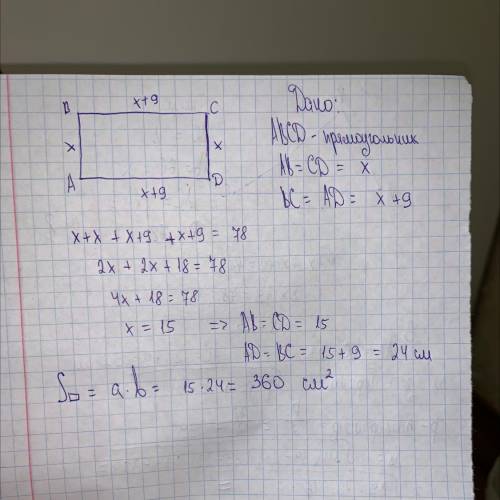 x+9
B C
x x
A D
x+9
Дано:
ABCD - прямоугольник
AB = CD = x
BC = AD = x+9
x+x + x+9 + x+9 = 78
2x + 2x + 18 = 78
4x + 18 = 78
x = 15 => AB = CD = 15
AD = BC = 15+9 = 24 см
S▭ = a·b = 15·24 = 360 см²